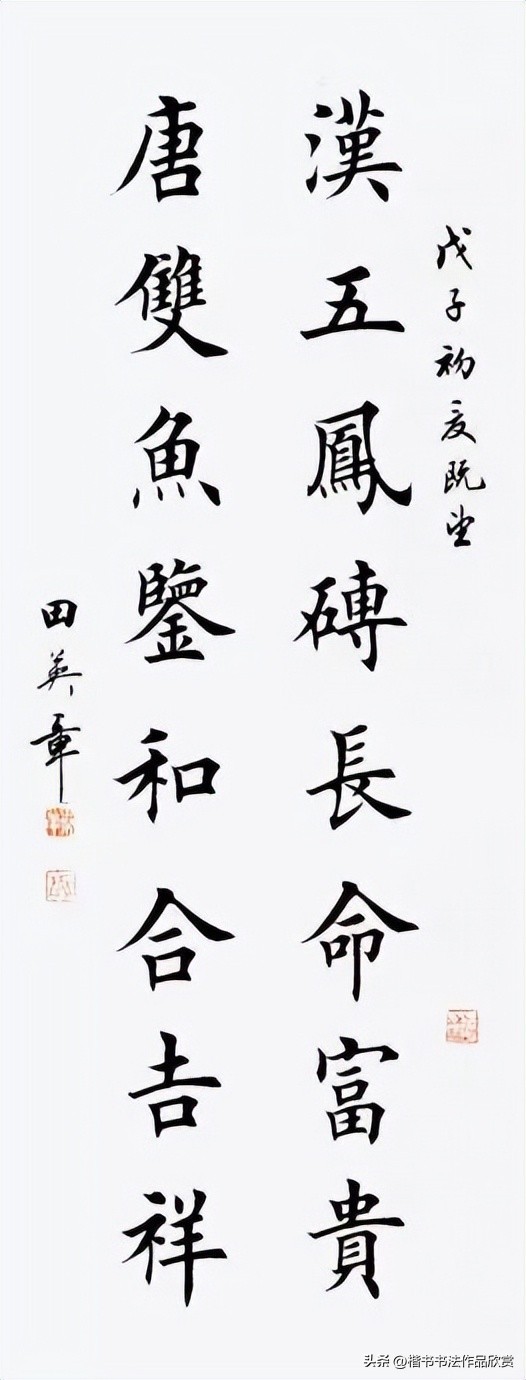 戊子初夏既望
漢五鳳磚長命富貴
唐雙魚鑒和合吉祥
田英章
头条 @楷书书法作品欣赏